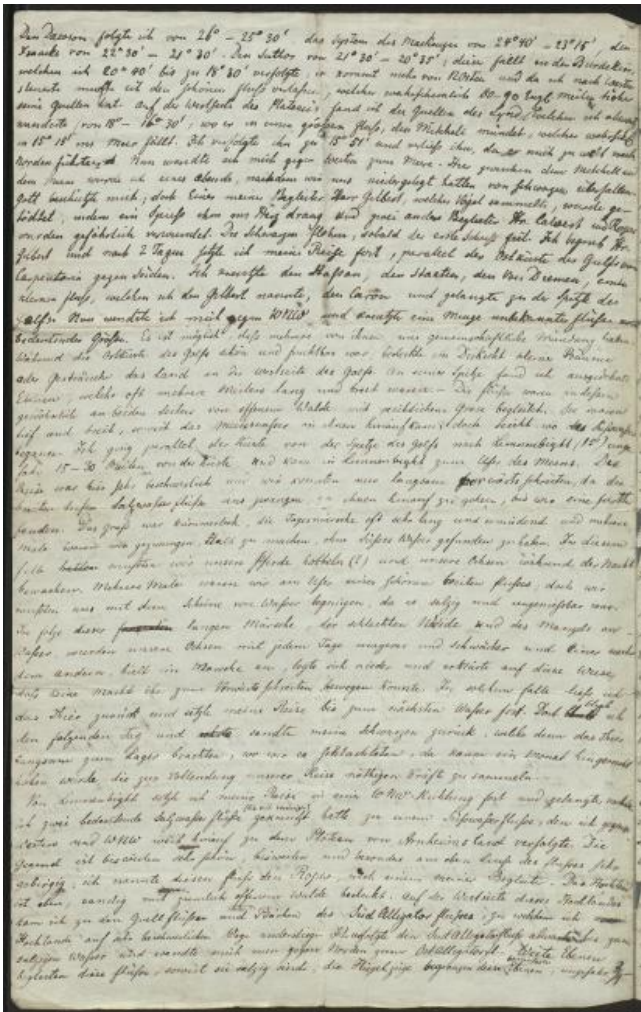 Den Dawson folgte ich von 26° – 25° 30' das System des Mackenzie von 24° 40' – 23° 15', den
Isaacs von 22° 30' – 21° 30'. Den Suttor von 21° 30' – 20° 35', dieser fällt in den Burdekin,
welchen ich 20° 40' bis zu 18° 30' verfolgte, er kommt mehr von Norden und da ich nach Westen
steuerte mußte ich den schönen Fluß verlassen, welcher wahrscheinlich 80–90 Engl. Meilen höher
seine Quellen hat. Auf der Westseite des Plateaus fand ich die Quellen des Lynd, welchen ich
wanderte, von 18° – 16° 30', wo er in einen größern Fluß, den Mitchell mündet, welcher
in 15° 15' ins Meer fällt. Ich verfolgte ihn zu 15° 51' und verließ ihn, da er mich zu weit nach
Norden führte. Nun wandte ich mich gegen Westen zum Meere. Hier zwischen dem Mitchell und
dem Meere wurde ich eines Abends, nachdem wir uns niedergelegt hatten von Schwarzen überfallen
Gott beschützte mich, doch Einer meiner Begleiter Herr Gilbert, welcher Vögel sammelte, wurde ge-
tödtet, indem ein Spieß ihm ins Herz drang und zwei andre Begleiter Hr. Calvert und Roper
wurden gefährlich verwundet. Die Schwarzen flohen, sobald der erste Schuß fiel. Ich begrub Hr.
Gilbert und nach 2 Tagen setzte ich meine Reise fort, parallel der Ostküste des Golfs von
Carpentaria gegen Süden. Ich kreuzte den Nassau, den Staaten, den Van Diemen, einen
kleinen Fluß, welchen ich den Gilbert nannte, den Caron und gelangte zu der Spitze des
Golfs. Nun wendte ich mich gegen WNW und kreuzte eine Menge unbekannter Flüße
bedeutender Größe. Es ist möglich, daß mehrere von ihnen eine gemeinschaftliche Mündung haben
Während die Ostküste des Golfs schön und fruchtbar war, bedeckte ein Dickicht kleiner Bäume
oder Gesträuch das Land an der Westseite des Golfs. An seiner Spitze fand ich ausgedehnte
Ebenen, welche oft mehrere Meilen lang und breit waren. – Die Flüße waren indessen
gewöhnlich an beiden Seiten von offenem Walde mit reichlichem Grase begleitet. Sie waren
tief und breit, soweit das Meerwasser in ihnen hinauf kam; doch seicht wo das Süßwasser
begann. Ich ging parallel der Küste von der Spitze des Golfs nach Limmenbight
15 – 30 Meilen von der Küste und kam in Limmenbight zum Ufer des Meeres. Die
Reise war hier sehr beschwerlich und wir konnten nur langsam vorwärts schreiten, da die
breiten tiefen Salzwasserflüße uns zwangen, an ihnen hinauf zu gehen, bis wir eine Furth
fanden. Das Gras war kümmerlich, die Tagemärsche oft sehr lang und ermüdend und mehrere
Male waren wir gezwungen Halt zu machen, ohne süßes Wasser gefunden zu haben. In diesem
Falle mußten wir unsere Pferde hobbeln (?) und unsere Ochsen während der Nacht
bewachen. Mehrere Male waren wir am Ufer eines schönen breiten Flußes, doch wir
mußten uns mit dem Scheine von Wasser begnügen, da es salzig und ungenießbar war.
In Folge dieser langen Märsche, der schlechten Weide und des Mangels an
Wasser wurden unsere Ochsen mit jedem Tage magerer und schwächer und Einer nach
dem andern hielt im Marsche an, legte sich nieder und erklärte auf diese Weise,
daß keine Macht ihn zum Vorwärtsschreiten bewegen könnte. In solchem Falle ließ ich
das Thier zurück und setzte meine Reise bis zum nächsten Wasser fort. Dort blieb ich
den folgenden Tag und sandte meine Schwarzen zurück, welche dann das Thier
langsam zum Lager brachten, wo wir es schlachteten, da kaum ein Monat hingereicht
haben würde, die zur Vollendung unserer Reise nöthigen Kräfte zu sammeln.
Von Limmenbight setzte ich meine Reise in einer WNW-Richtung fort und gelangte, nachdem
ich zwei bedeutende Salzwasser Flüße gekreuzt hatte zu einem Süßwasserfluße, den ich gegen
Westen und WNW weit hinauf zu dem Plateau von Arnheimsland verfolgte. Die
Gegend ist bisweilen sehr schön, bisweilen und besonders am obern Laufe des Flußes sehr
gebirgig, ich nannte diesen Fluß den Roper, nach einem meiner Begleiter. Das Hochland
ist eben, sandig mit ziemlich offenem Walde bedeckt. Auf der Westseite dieses Hochlandes
kam ich zu den Quellflüßen und Bächen des Süd Alligator Flußes, zu welchem ich vom
Hochlande auf sehr beschwerlichem Wege niederstieg. Ich folgte den Süd Alligatorfluß abwärts bis zum
salzigen Wasser und wandte mich nun gegen Norden zum Ost Alligator. Weite Ebenen
begleiten diese Flüße, soweit sie salzig sind, die Hügelzüge begrenzen diese Ebenen, ungefähr